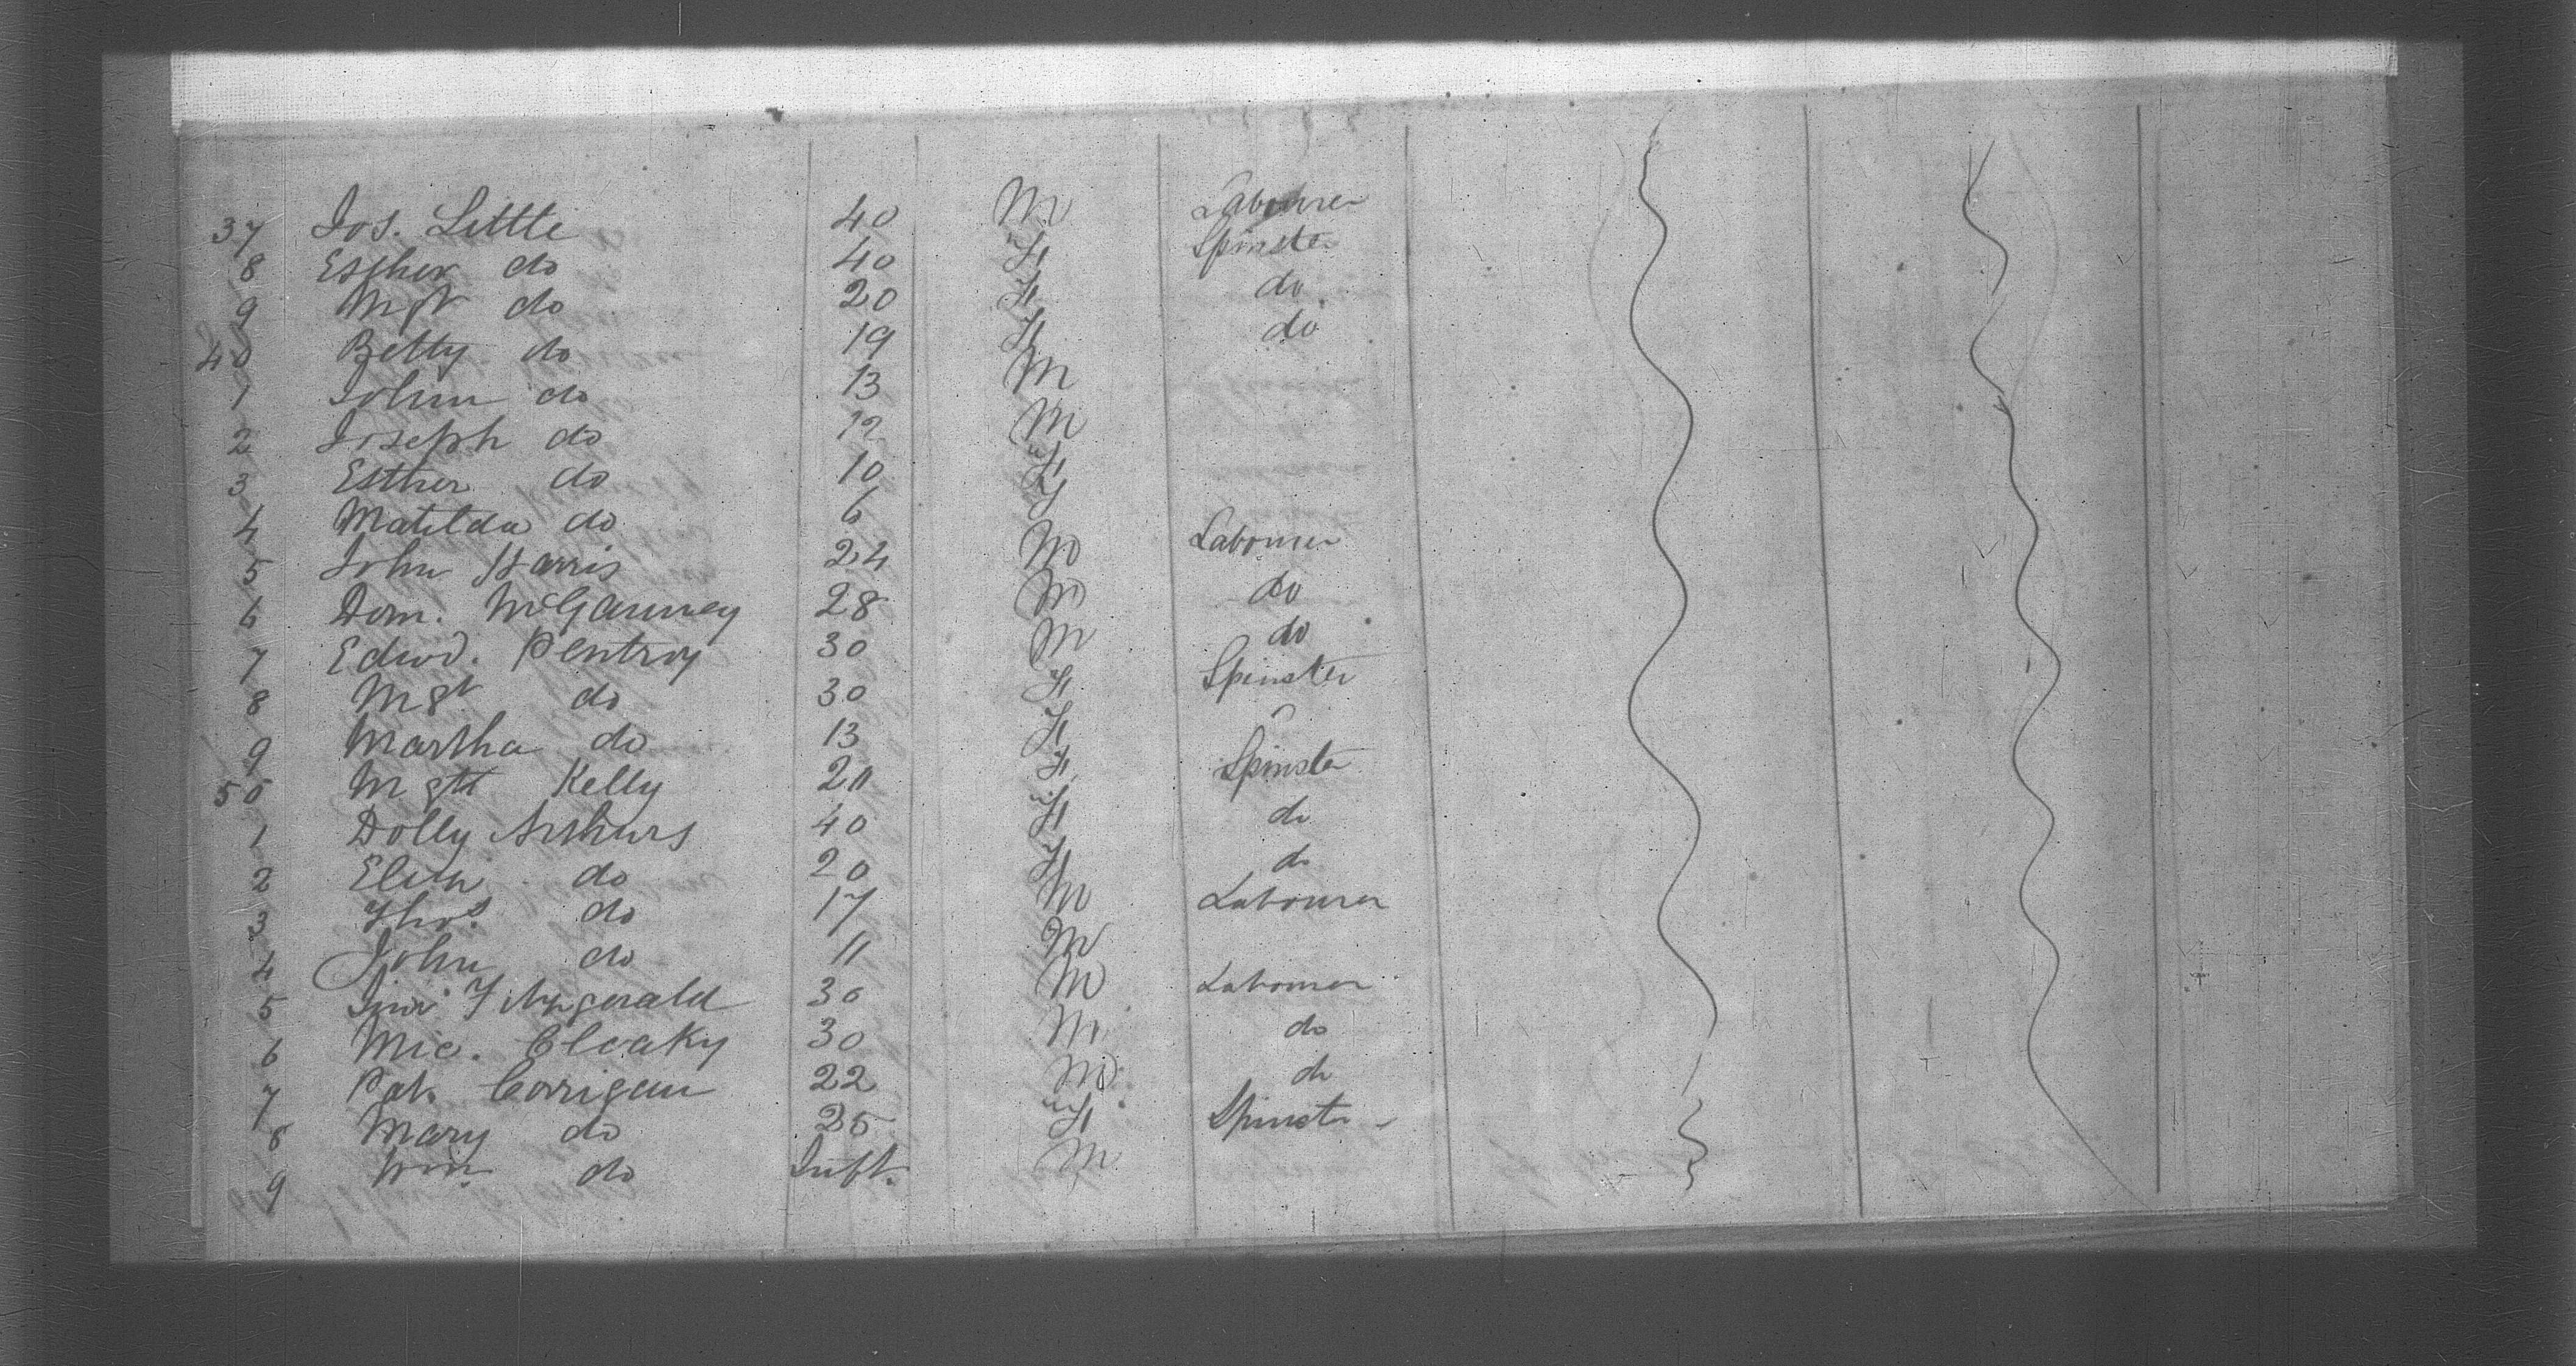 37 Jos. Little 40 M Labourer
8 Esther do 40 F Spinster
9 Mgt do 20 F do
40 Betty do 19 F do
1 John do 13 M
2 Joseph do 12 M
3 Esther do 10 F
4 Matilda do 6 F
5 John Harris 24 M Labourer
6 Dom. McGanney 28 M do
7 Edwd. Pentroy 30 M do
8 Mgt do 30 F Spinster
9 Martha do 13 F
50 Mgtt Kelly 20 F Spinster
1 Dolly Arthurs 40 F do
2 Eliza do 20 F do
3 Thos do 17 M Labourer
4 John do 11 M
5 Fitzgerald 30 M Labourer
6 Mic. Cloaky 30 M do
7 Pat. Corrigan 22 M do
8 Mary do 25 F Spinster
9 Wm do Inft. M